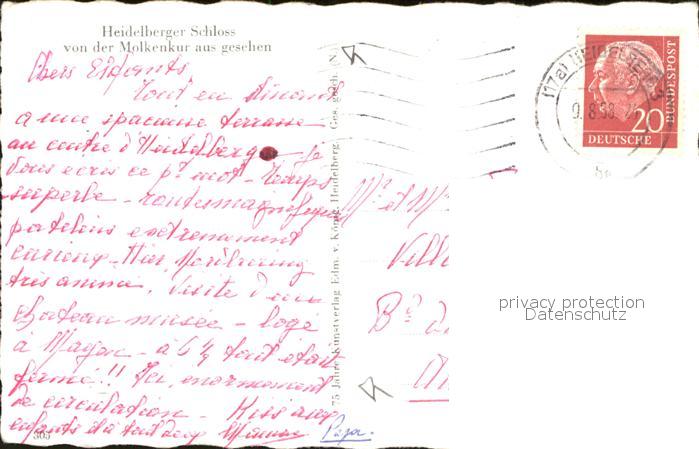 Heidelberger Schloss
von der Molkenkur aus gesehen
Chers Enfants
Tout en dinant
a une spacieuse terrasse
au centre d'Heidelberg - je
vous ecris ce pt mot - temps
superbe - routes magnifiques
extremement
curieux - Hier
tres animé. Visite d'un
chateau musée - logé
à - à 6 ½ tout etait
fermé!! Ici, enormement
de circulation - Kiss aux
enfants et à tout deux Maman Papa.
305
75 Jahre Kunstverlag Edm. v. König, Heidelberg. Ges. gesch. (N.)
(17a) HEIDELBERG
9.8.58
20
DEUTSCHE
BUNDESPOST
Mr et M
Vill
Bd d
privacy protection
Datenschutz